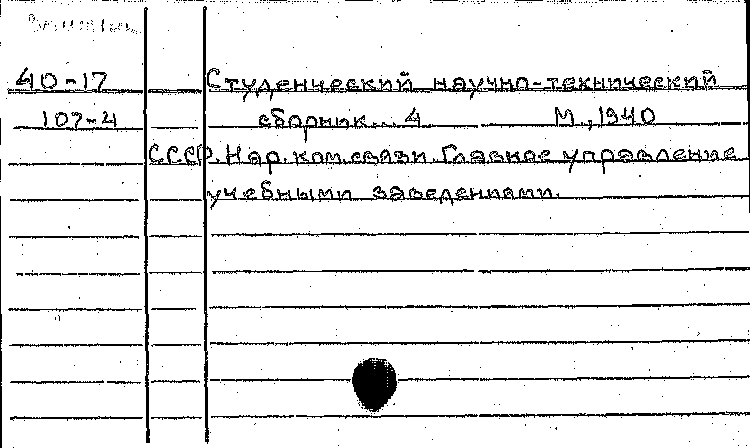 40-17 Студенческий научно-технический
107-4 сборник... 4 М., 1940
СССР. Нар. ком. связи. Главное управление
учебными заведениями.